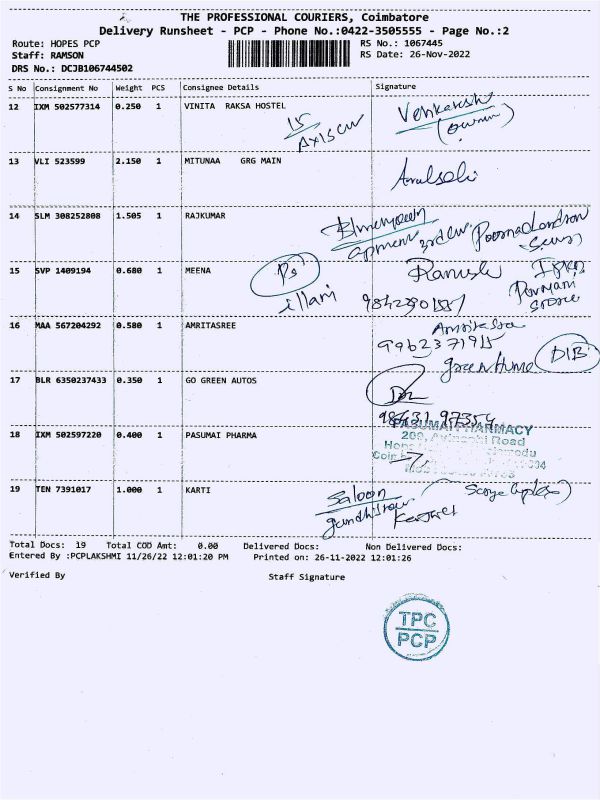 THE PROFESSIONAL COURIERS, Coimbatore
Delivery Runsheet - PCP - Phone No.:0422-3505555 - Page No.:2
Route: HOPES PCP
RS No.: 1067445
Staff: RAMSON
RS Date: 26-Nov-2022
DRS No.: DCJB106744502
S No Consignment No Weight PCS Consignee Details Signature
12 IXM 502577314 0.250 1 VINITA RAKSA HOSTEL
Venkatesh
(owner)
13 VLI 523599 2.150 1 MITUNAA GRG MAIN
Arulselvi
14 SLM 308252808 1.505 1 RAJKUMAR
15 SVP 1409194 0.680 1 MEENA
Ramesh
illam
16 MAA 567204292 0.580 1 AMRITASREE
9962371915
green Home
17 BLR 6350237433 0.350 1 GO GREEN AUTOS
98431 97354
18 IXM 502597220 0.400 1 PASUMAI PHARMA
PASUMAI PHARMACY
Avinashi Road
19 TEN 7391017 1.000 1 KARTI
Saloon
Total Docs: 19 Total COD Amt: 0.00 Delivered Docs: Non Delivered Docs:
Entered By :PCPLAKSHMI 11/26/22 12:01:20 PM Printed on: 26-11-2022 12:01:26
Verified By Staff Signature
TPC
PCP